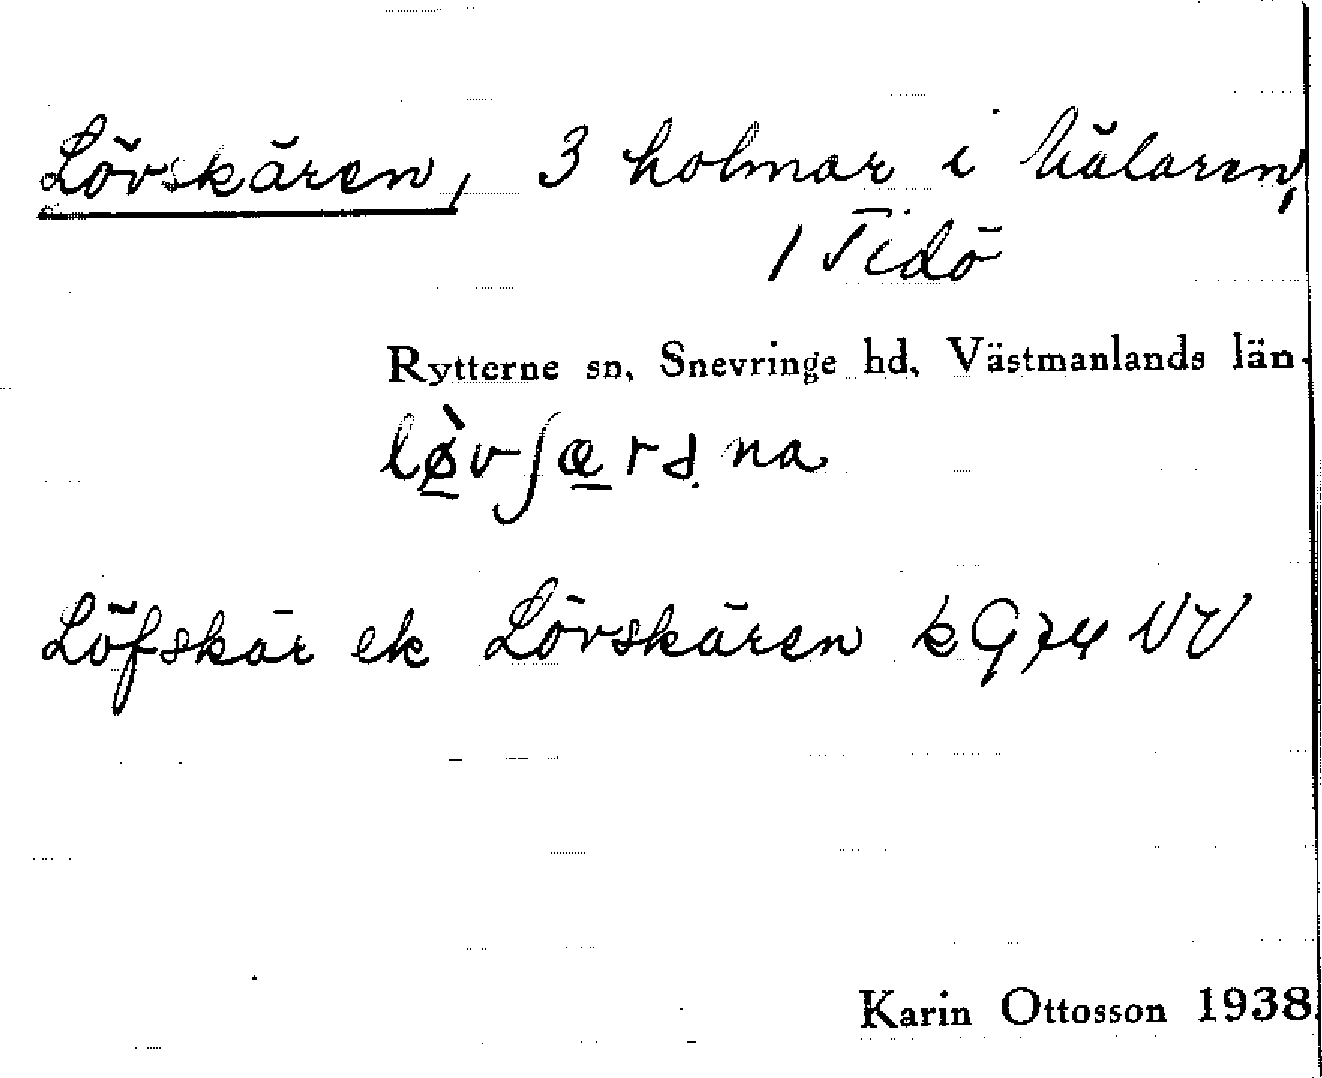 Lövskären, 3 holmar i Mälaren,
/ Tidö
Rytterne sn, Snevringe hd, Västmanlands län.
Löfskär ek Lövskären k G 74 NV
Karin Ottosson 1938.